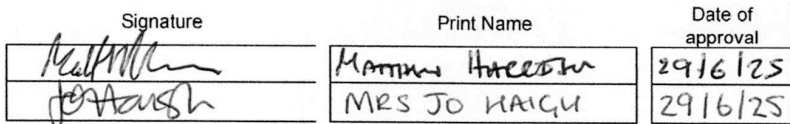 Signature Print Name Date of
approval
MATTHEW 29/6/25
JO Haigh MRS JO HAIGH 29/6/25